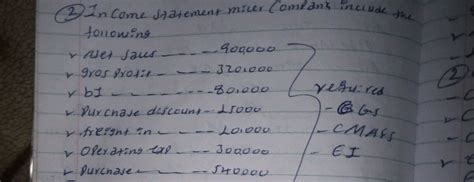 ② Income statement miller Company include the
following
✓ Net sales ---- 900,000
✓ gros profit --- 320,000
✓ bI ---- 80,000
✓ Purchase discount - 15000
✓ freight in --- 20,000
✓ Operating exp --- 300,000
✓ Purchase --- 540,000
required
- CGS
- CMASS
- EI
②